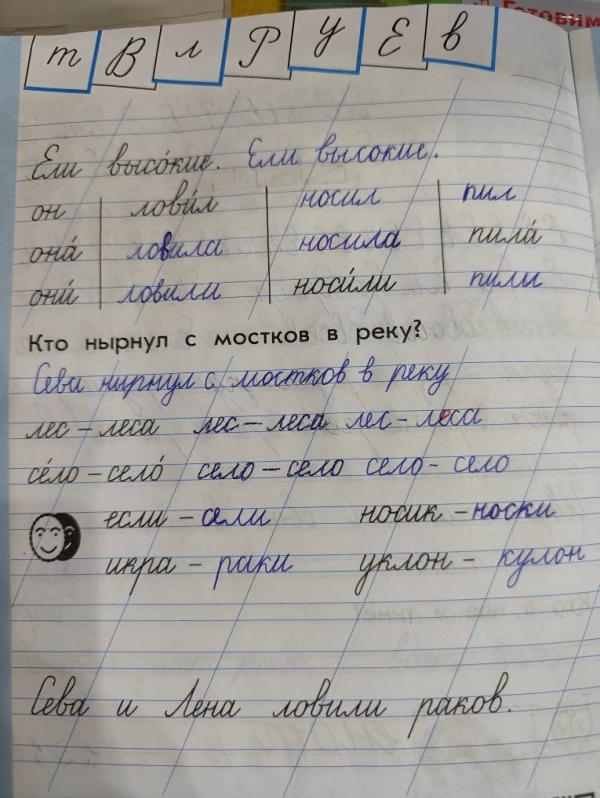 Готовим
т В л Р У Е в
Ели высо́кие. Ели высокие.
он лови́л носил пил
она́ ловила носила пила́
они́ ловили носи́ли пили
Кто нырнул с мостков в реку?
Сева нирнул с мостков в реку
лес – леса лес – леса лес - леса
се́ло – село́ село – село село - село
если – сели носик – носки
икра – раки уклон – кулон
Сева и Лена ловили раков.